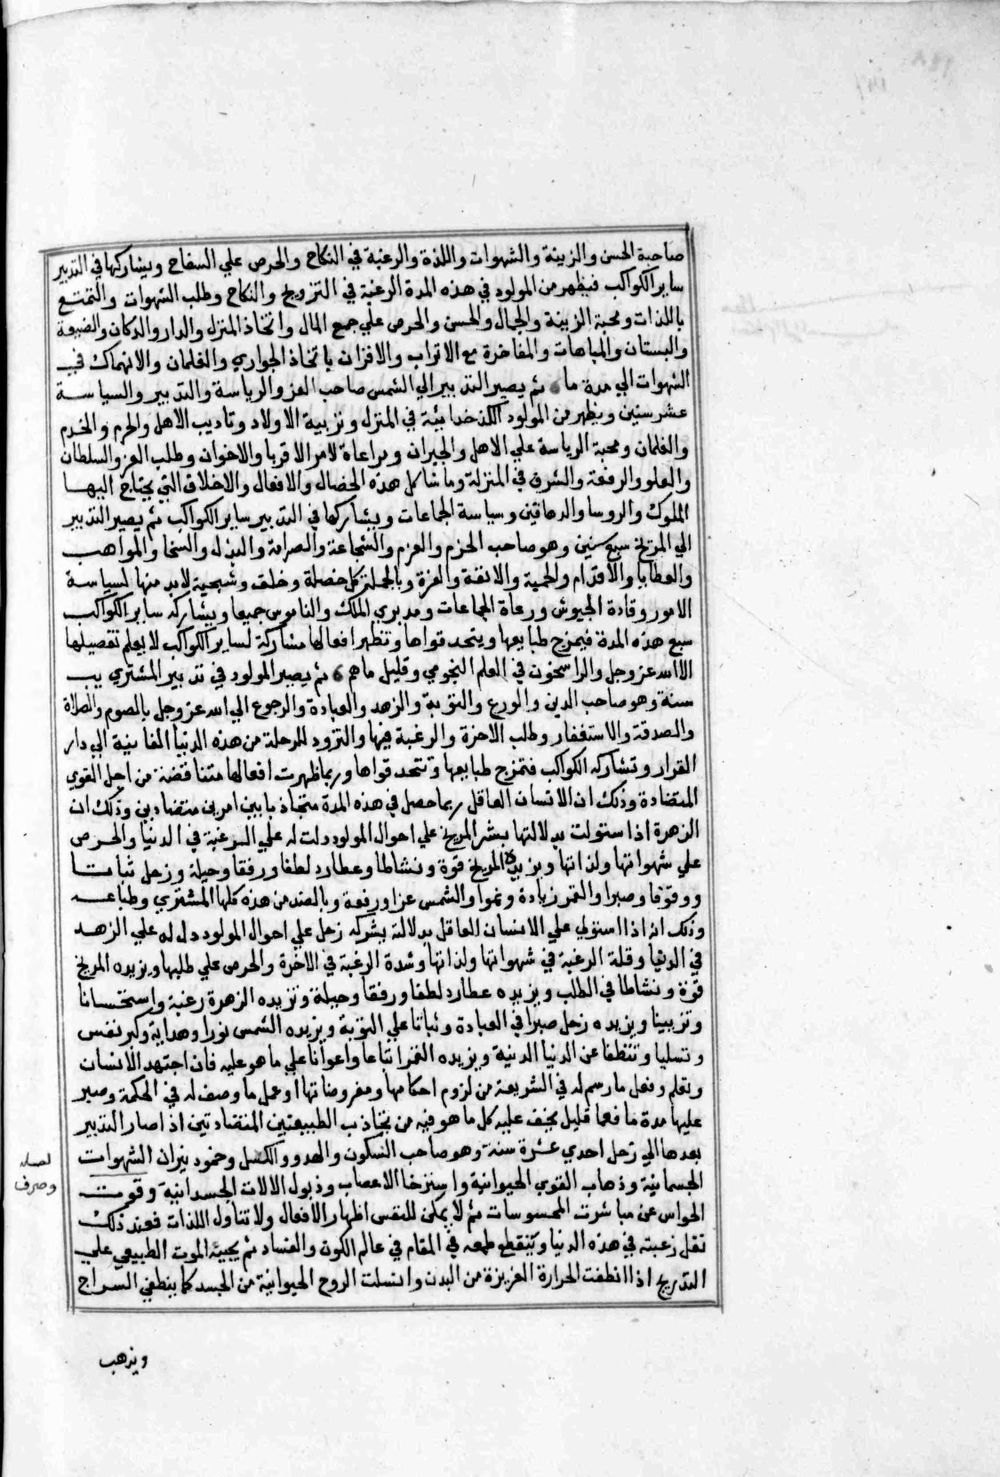 صاحبة الحسن والزينة والشهوات واللذة والرغبة في النكاح والحرص علي السفاح ويشاركها في التدبير
ساير الكواكب فيظهر من المولود في هذه المدة الرغبة في التزويج والنكاح وطلب الشهوات والتمتع
باللذات ومحبة الزينة والجمال والحسن والحرص علي جمع المال واتخاذ المنزل والدار والدكان والضيعة
والبستان والمباهات والمفاخرة مع الاتراب والاقران باتخاذ الجواري والغلمان والانهماك في
الشهوات الي مدة ما ثم يصير التدبير الي الشمس صاحب العز والرياسة والتدبير والسياسة
عشر سنين ويظهر من المولود الكدخدائية في المنزل وتربية الاولاد وتاديب الاهل والحرم والخدم
والغلمان ومحبة الرياسة علي الاهل والجيران ومراعاة لامر الاقربا والاخوان وطلب العز والسلطان
والعلو والرفعة والشرف في المنزلة وما شاكل هذه الخصال والافعال والاخلاق التي يحتاج اليها
الملوك والروسا والدهاقين وسياسة الجماعات ويشاركها في التدبير ساير الكواكب ثم يصير التدبير
الي المريخ سبع سنين وهو صاحب الحزم والعزم والشجاعة والصرامة والبذل والسخا والمواهب
والعطايا والاقدام والحمية والانفة والعزة وبالجملة كل خصلة وخلق وسجية لابد منها لسياسة
الامور وقادة الجيوش ورعاة الجماعات ومدبري الملك والناموس جميعا ويشاركه ساير الكواكب
سبع هذه المدة فيمزج طبايعها ويتحد قواها وتظهر افعالها مشاركة لساير الكواكب لا يعلم تفصيلها
الا الله عز وجل والراسخون في العلم النجومي وقليل ما هم 6 ثم يصير المولود في تدبير المشتري يب
سنة وهو صاحب الدين والورع والتوبة والزهد والعبادة والرجوع الي الله عز وجل بالصوم والصلاة
والصدقة والاستغفار وطلب الاخرة والرغبة فيها والتزود للرحلة من هذه الدنيا الفانية الي دار
القرار وتشاركه الكواكب فتمزج طبايعها وتتحد قواها وربما ظهرت افعالها متناقضة من اجل القوي
المتضادة وذلك ان الانسان العاقل ربما حصل في هذه المدة متجاذبا بين امرين متضادين وذلك ان
الزهرة اذا ستولت بدلالتها بشر المريخ علي احوال المولود دلت له علي الرغبة في الدنيا والحرص
علي شهواتها ولذاتها ويزيده المريخ قوة ونشاطا وعطارد لطفا ورفقا وحيلة وزحل ثباتا
ووقوفا وصبرا والقمر زيادة ونموا والشمس عزا ورفعة وبالضد من هذه كلها المشتري وطباعه
وذلك انه اذا استولي علي الانسان العاقل بدلالة بشركه زحل علي احوال المولود دل له علي الزهد
في الدنيا وقلة الرغبة في شهواتها ولذاتها وشدة الرغبة في الاخرة والحرص علي طلبها ويزيده المريخ
قوة ونشاطا في الطلب ويزيده عطارد لطفا ورفقا وحيلة وتزيده الزهرة رغبة واستحسانا
وتزيينا ويزيده زحل صبرا في العبادة وثباتا علي التوبة ويزيده الشمس نورا وهداية وكبر نفس
وتسليا وتنظفا عن الدنيا الدنية ويزيده القمر اتباعا واعوانا علي ما هو عليه فان اجتهد الانسان
وتعلم وفعل ما رسم له في الشريعة من لزوم احكامها ومفروضاتها او عمل ما وصف له في الحكمة وصبر
عليها مدة ما فعما قليل يخف عليه كل ما هو فيه من تجاذب الطبيعتين المتضادتين اذا صار التدبير
بعدها الي زحل احدي عشرة سنة وهو صاحب السكون والهدو والكسل وخمود نيران الشهوات
الجسمانية وذهاب القوي الحيوانية واسترخا الاعصاب وذبول الالات الجسدانية وقومت
الحواس عن مباشرت المحسوسات ثم لا يمكن للنفس اظهار الافعال ولا تناول اللذات فعند ذلك
تقل رغبته في هذه الدنيا وينقطع طمعه في المقام في عالم الكون والفساد ثم يجيئه الموت الطبيعي علي
التدريج اذا انطفت الحرارة الغريزة من البدن وانسلت الروح الحيوانية من الجسد كما ينطفي السراج
وصرف
ويذهب